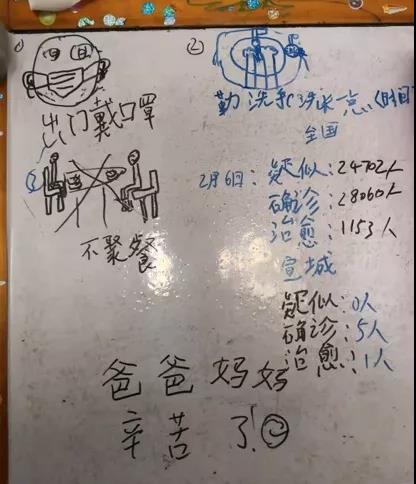 1)
出门戴口罩
不聚餐
②
勤洗手
全国
2月6日：疑似：24702人
确诊：28060人
治愈：1153人
宣城
疑似：0人
确诊：5人
治愈：1人
爸爸妈妈
辛苦了！